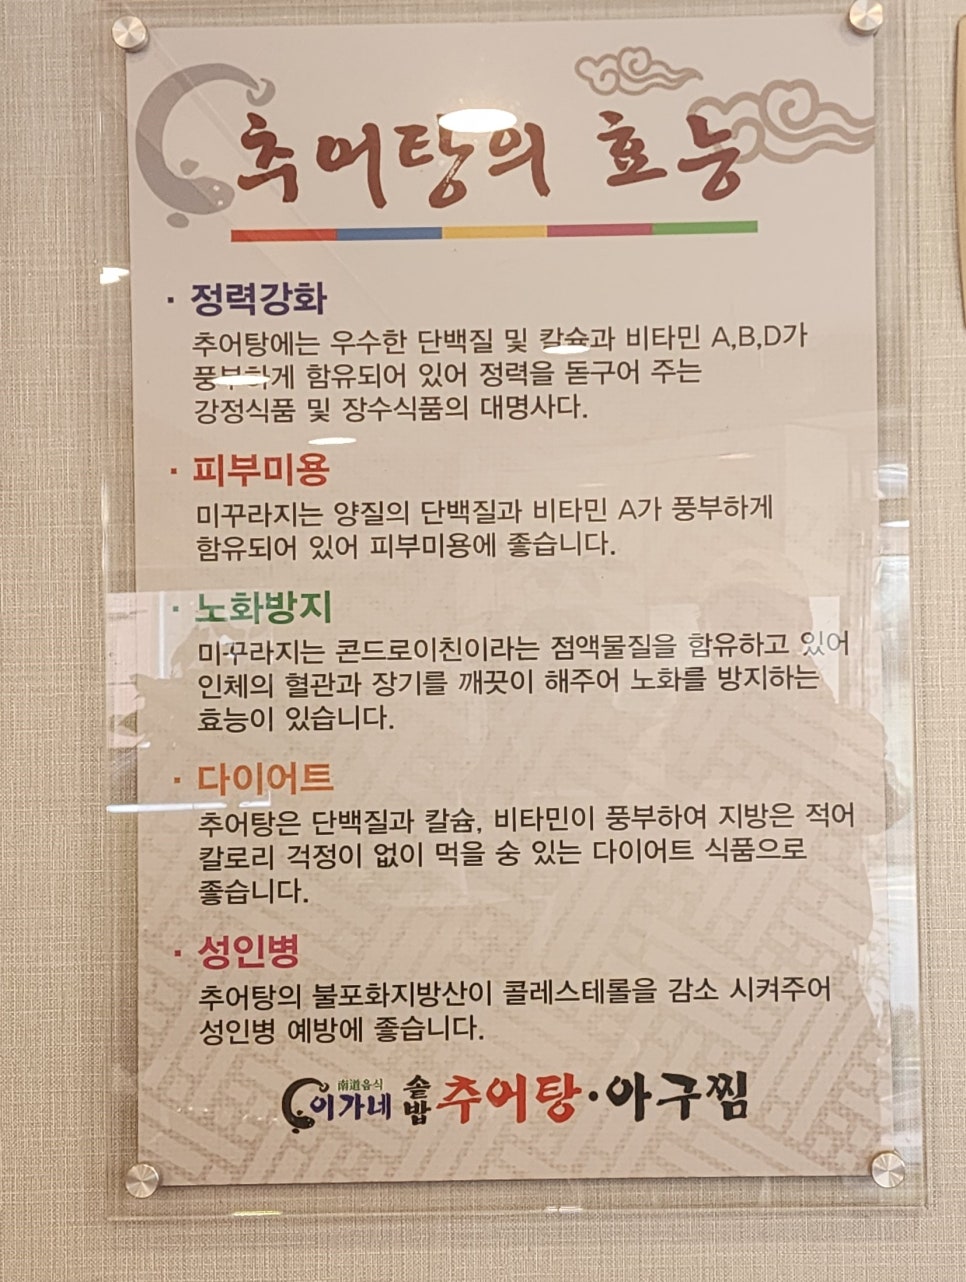 추어탕의 효능
· 정력강화
추어탕에는 우수한 단백질 및 칼슘과 비타민 A,B,D가
풍부하게 함유되어 있어 정력을 돋구어 주는
강정식품 및 장수식품의 대명사다.
· 피부미용
미꾸라지는 양질의 단백질과 비타민 A가 풍부하게
함유되어 있어 피부미용에 좋습니다.
· 노화방지
미꾸라지는 콘드로이친이라는 점액물질을 함유하고 있어
인체의 혈관과 장기를 깨끗이 해주어 노화를 방지하는
효능이 있습니다.
· 다이어트
추어탕은 단백질과 칼슘, 비타민이 풍부하여 지방은 적어
칼로리 걱정이 없이 먹을 숭 있는 다이어트 식품으로
좋습니다.
· 성인병
추어탕의 불포화지방산이 콜레스테롤을 감소 시켜주어
성인병 예방에 좋습니다.
南道음식
이가네 솥밥 추어탕·아구찜